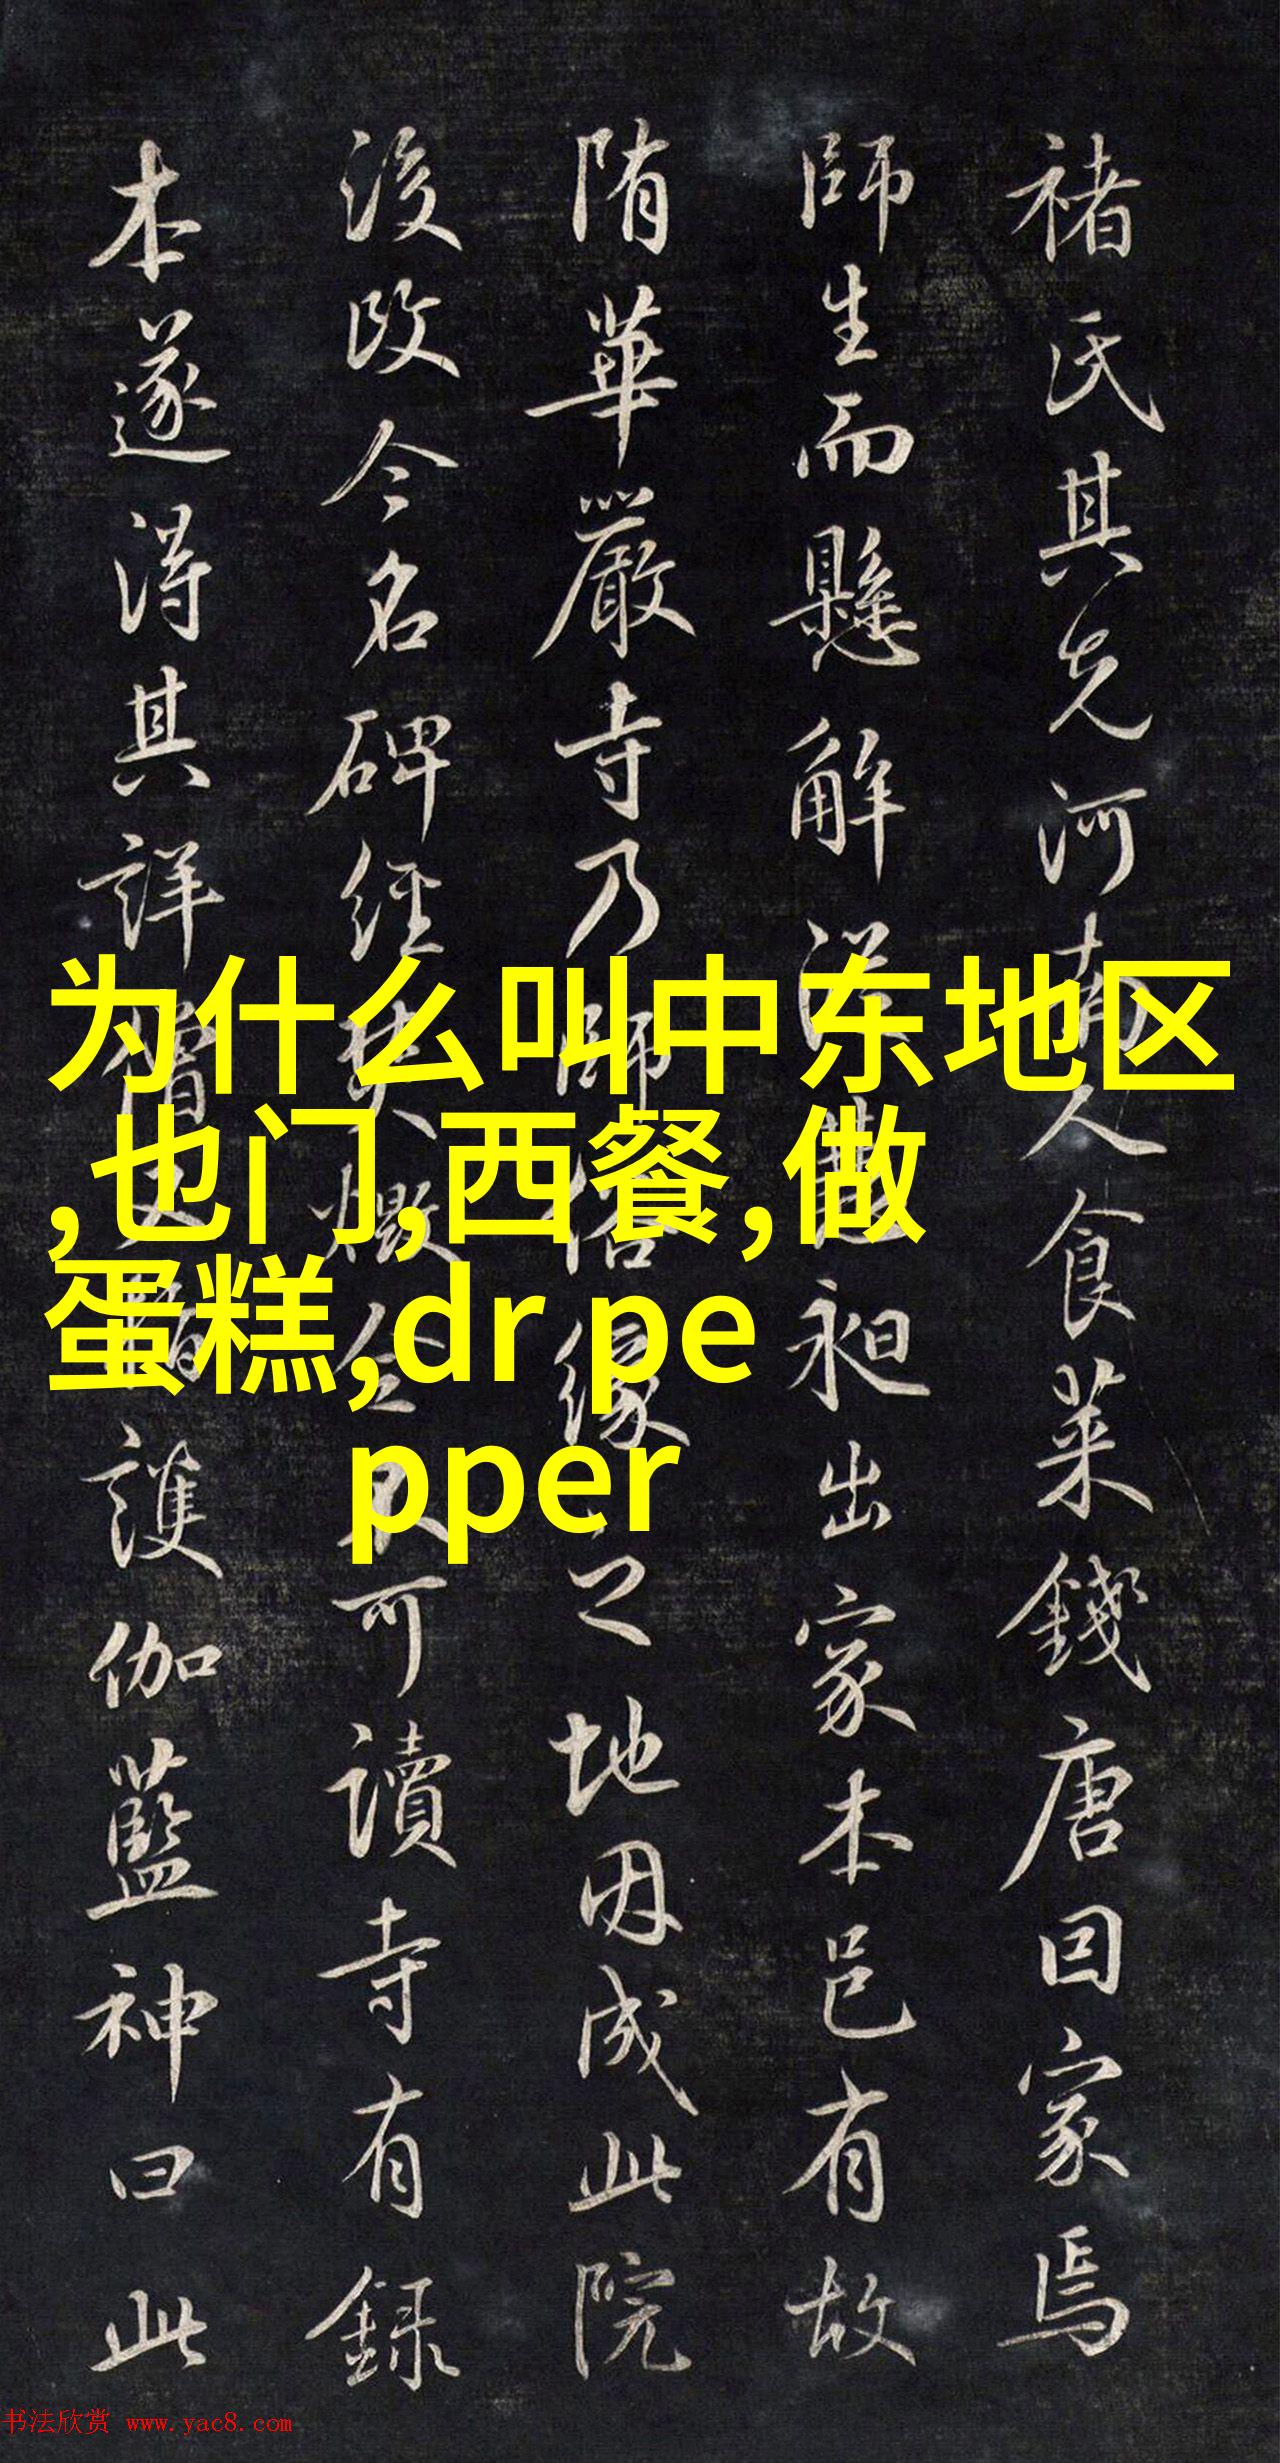 褚氏其先河南人食菜錢唐因家焉
師生而懸解昶出家本邑有故
隋華嚴寺乃師俗緣之地因成此院
後改今名碑經燬不可讀寺有錄
本遂得其詳護伽藍神曰此
为什么叫中东地区
,也门,西餐,做
蛋糕,dr pe
pper
书法欣赏 www.yac8.com